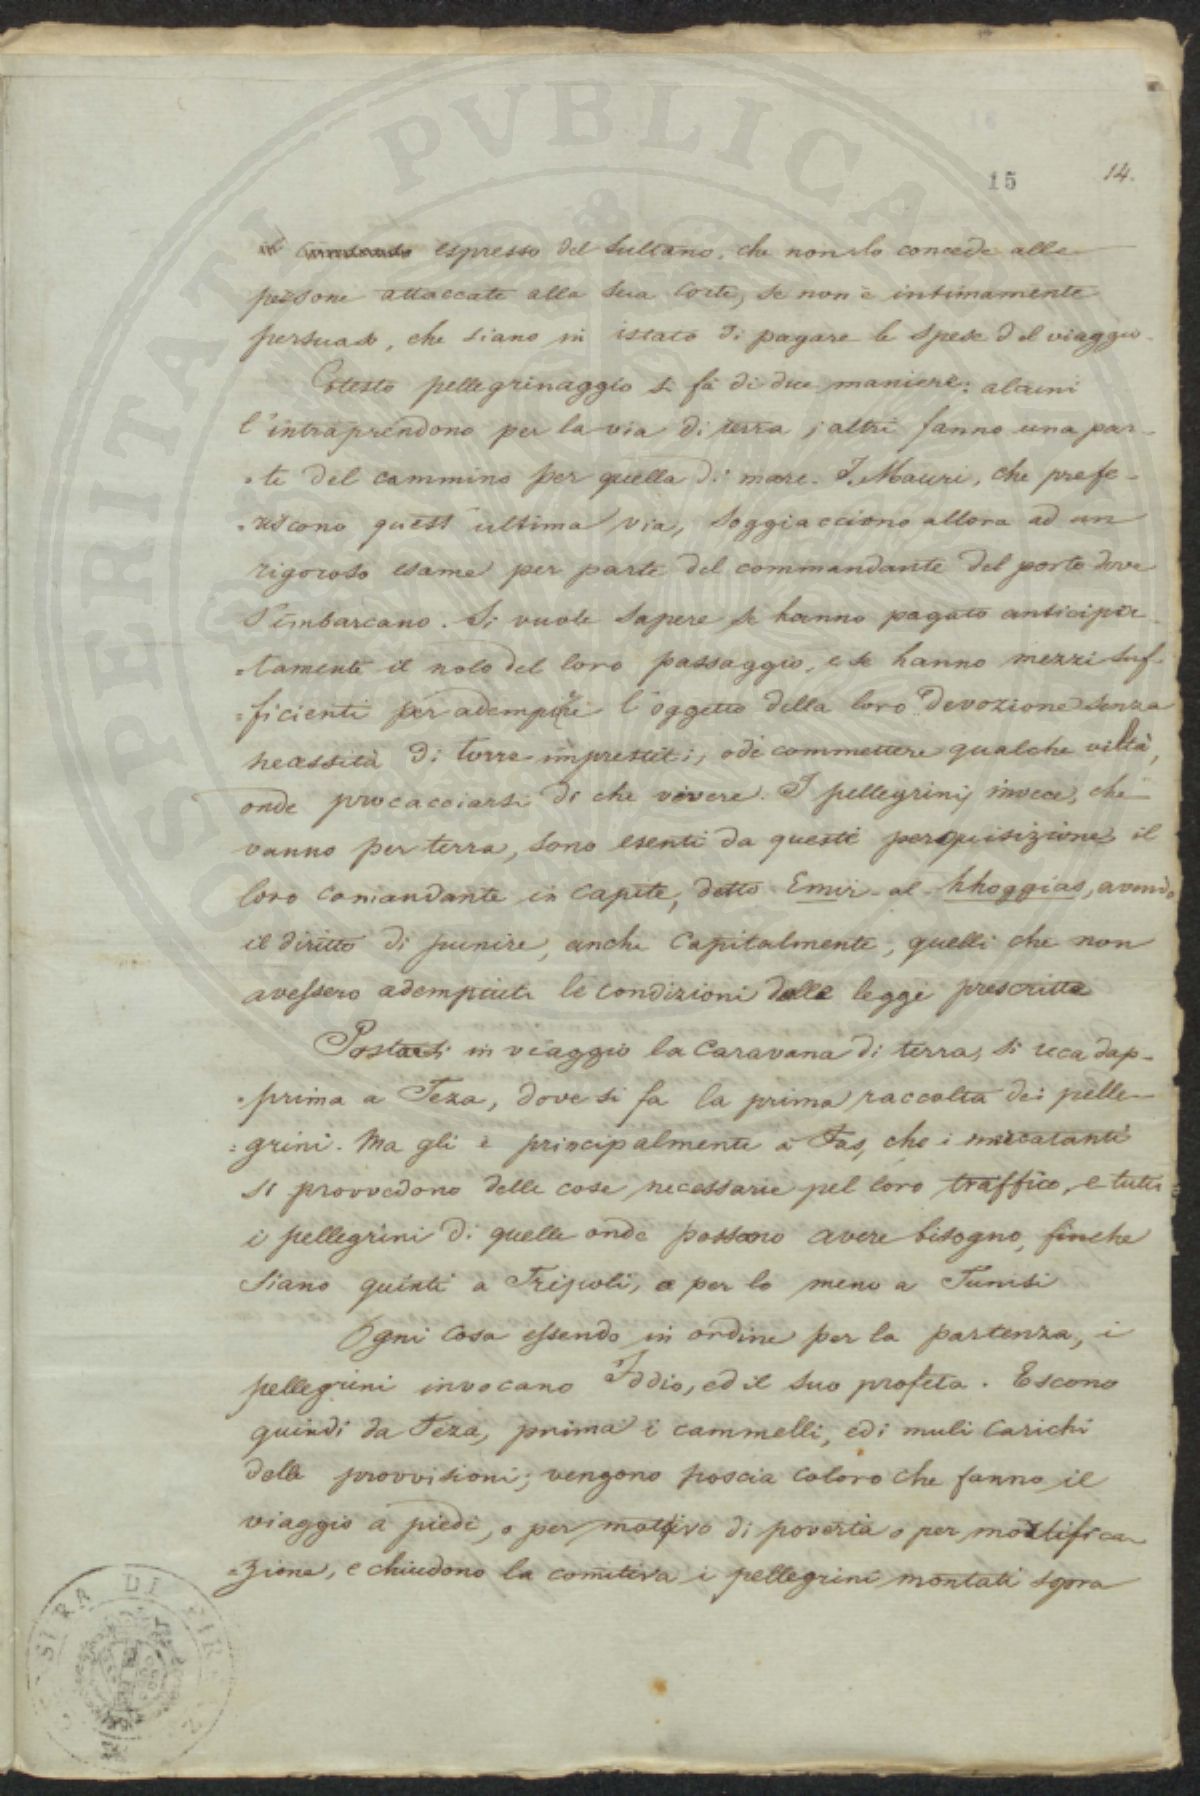 15
14.
il comando espresso del Sultano, che non lo concede alle
persone attaccate alla sua Corte, se non è intimamente
persuaso, che siano in istato di pagare le spese del viaggio.
Cotesto pellegrinaggio si fa di due maniere: alcuni
l'intraprendono per la via di terra, altri fanno una par-
=te del cammino per quella di mare. I Mauri, che prefe-
=riscono quest'ultima via, soggiacciono allora ad un
rigoroso esame per parte del commandante del porto dove
s'imbarcano. Si vuole sapere se hanno pagato anticipa-
=tamente il nolo del loro passaggio, e se hanno mezzi suf-
=ficienti per adempire l'oggetto della loro devozione senza
necessità di torre imprestiti, o di commettere qualche viltà,
onde procacciarsi di che vivere. I pellegrini invece, che
vanno per terra, sono esenti da queste perquisizione, il
loro comandante in capite, detto Emir-al-hhoggias, avendo
il diritto di punire, anche capitalmente, quelli che non
avessero adempiuti le condizioni dalle leggi prescritte
Postasi in viaggio la Caravana di terra, si reca dap-
=prima a Teza, dove si fa la prima raccolta dei pelle-
=grini. Ma gli è principalmente a Fas, che i mercatanti
si provvedono delle cose necessarie pel loro traffico, e tutti
i pellegrini di quelle onde possono avere bisogno, finche
siano quinti a Tripoli, o per lo meno a Tunisi
Ogni cosa essendo in ordine per la partenza, i
pellegrini invocano Iddio, ed il suo profeta. Escono
quindi da Teza, prima i cammelli, ed i muli carichi
delle provvisioni; vengono poscia coloro che fanno il
viaggio a piedi, o per motivo di povertà o per mortifica-
=zione, e chiudono la comitiva i pellegrini montati sopra